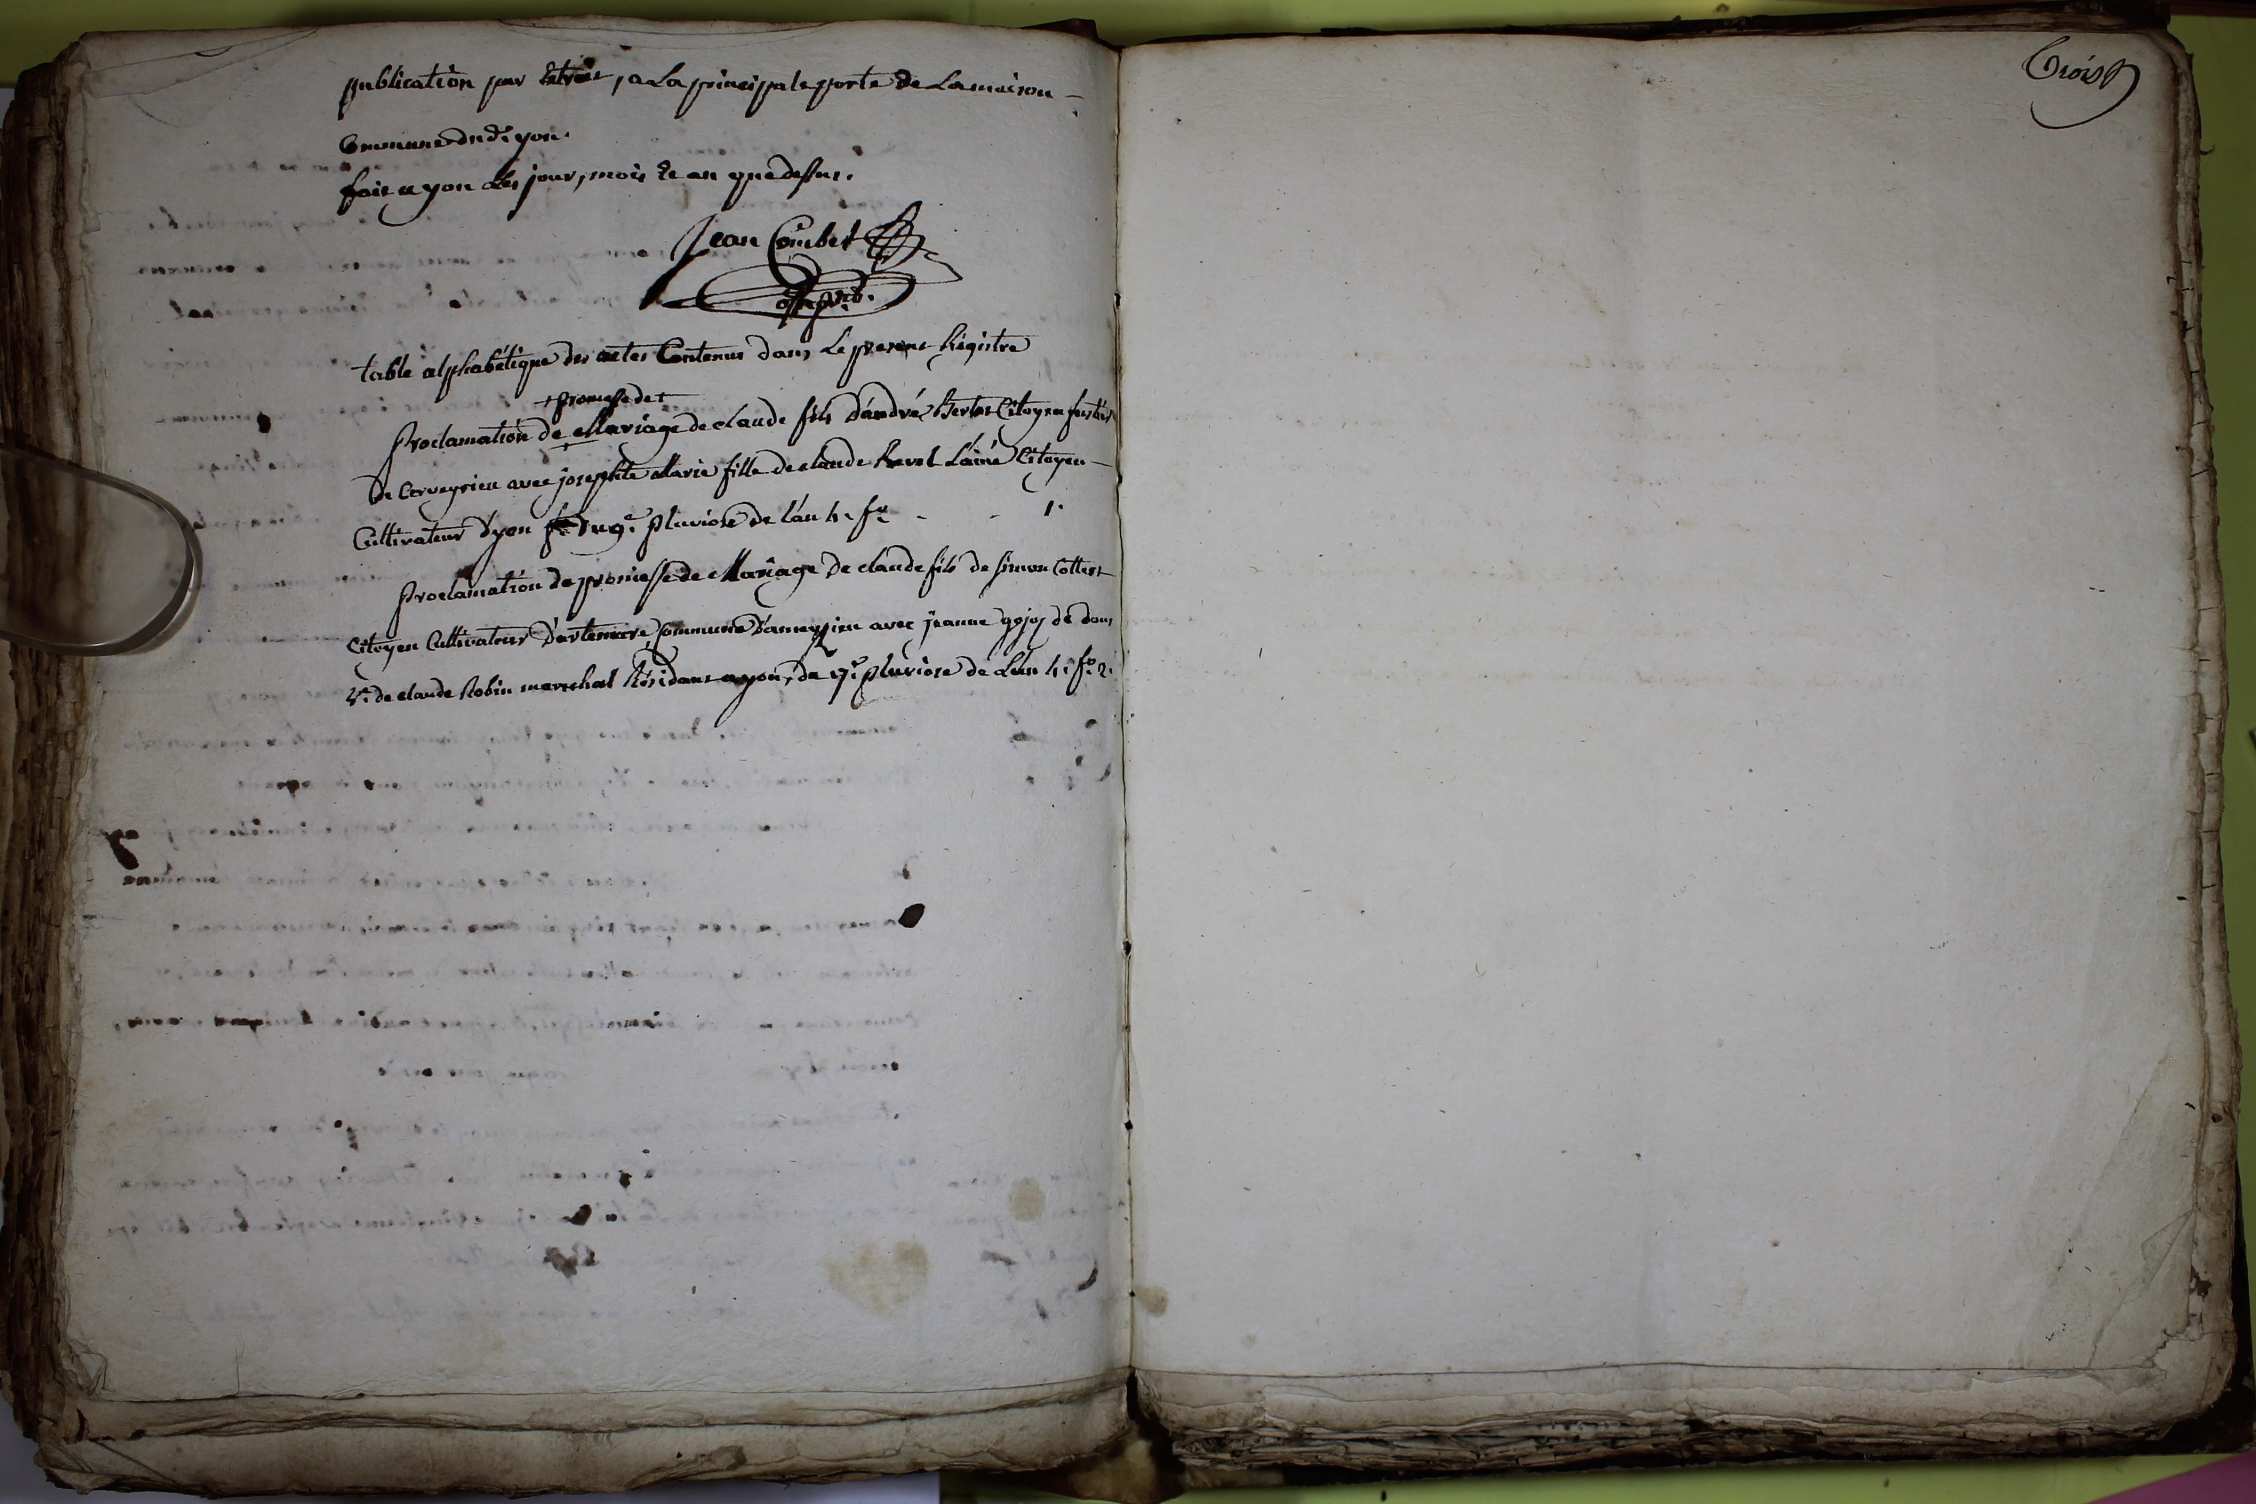 publication par Extrait, a La principale porte de La maison
Commune dud. yon.
fait a yon Les jour, mois Et an que dessus.
Jean Combet
off. pub.
table alphabétique des actes Contenus dans Le present Régistre
+ promesse de +
Proclamation de Mariage de claude fils d'andré Citoyen
De Cerveyrieu avec josephte Marie fille de claude Revel L'ainé Citoyen
Cultivateur d'yon du 9.e pluviose de l'an 4. f.o - - 1.
Proclamation de promesse de Mariage de claude fils de simon Collet
Citoyen Cultivateur d'artemare, Commune d'ameyzieu avec jeanne gojoz de don
V.e de claude Robin mareschal Résidant a yon, du 9.e pluviose de L'an 4. f.o 2.
Trois